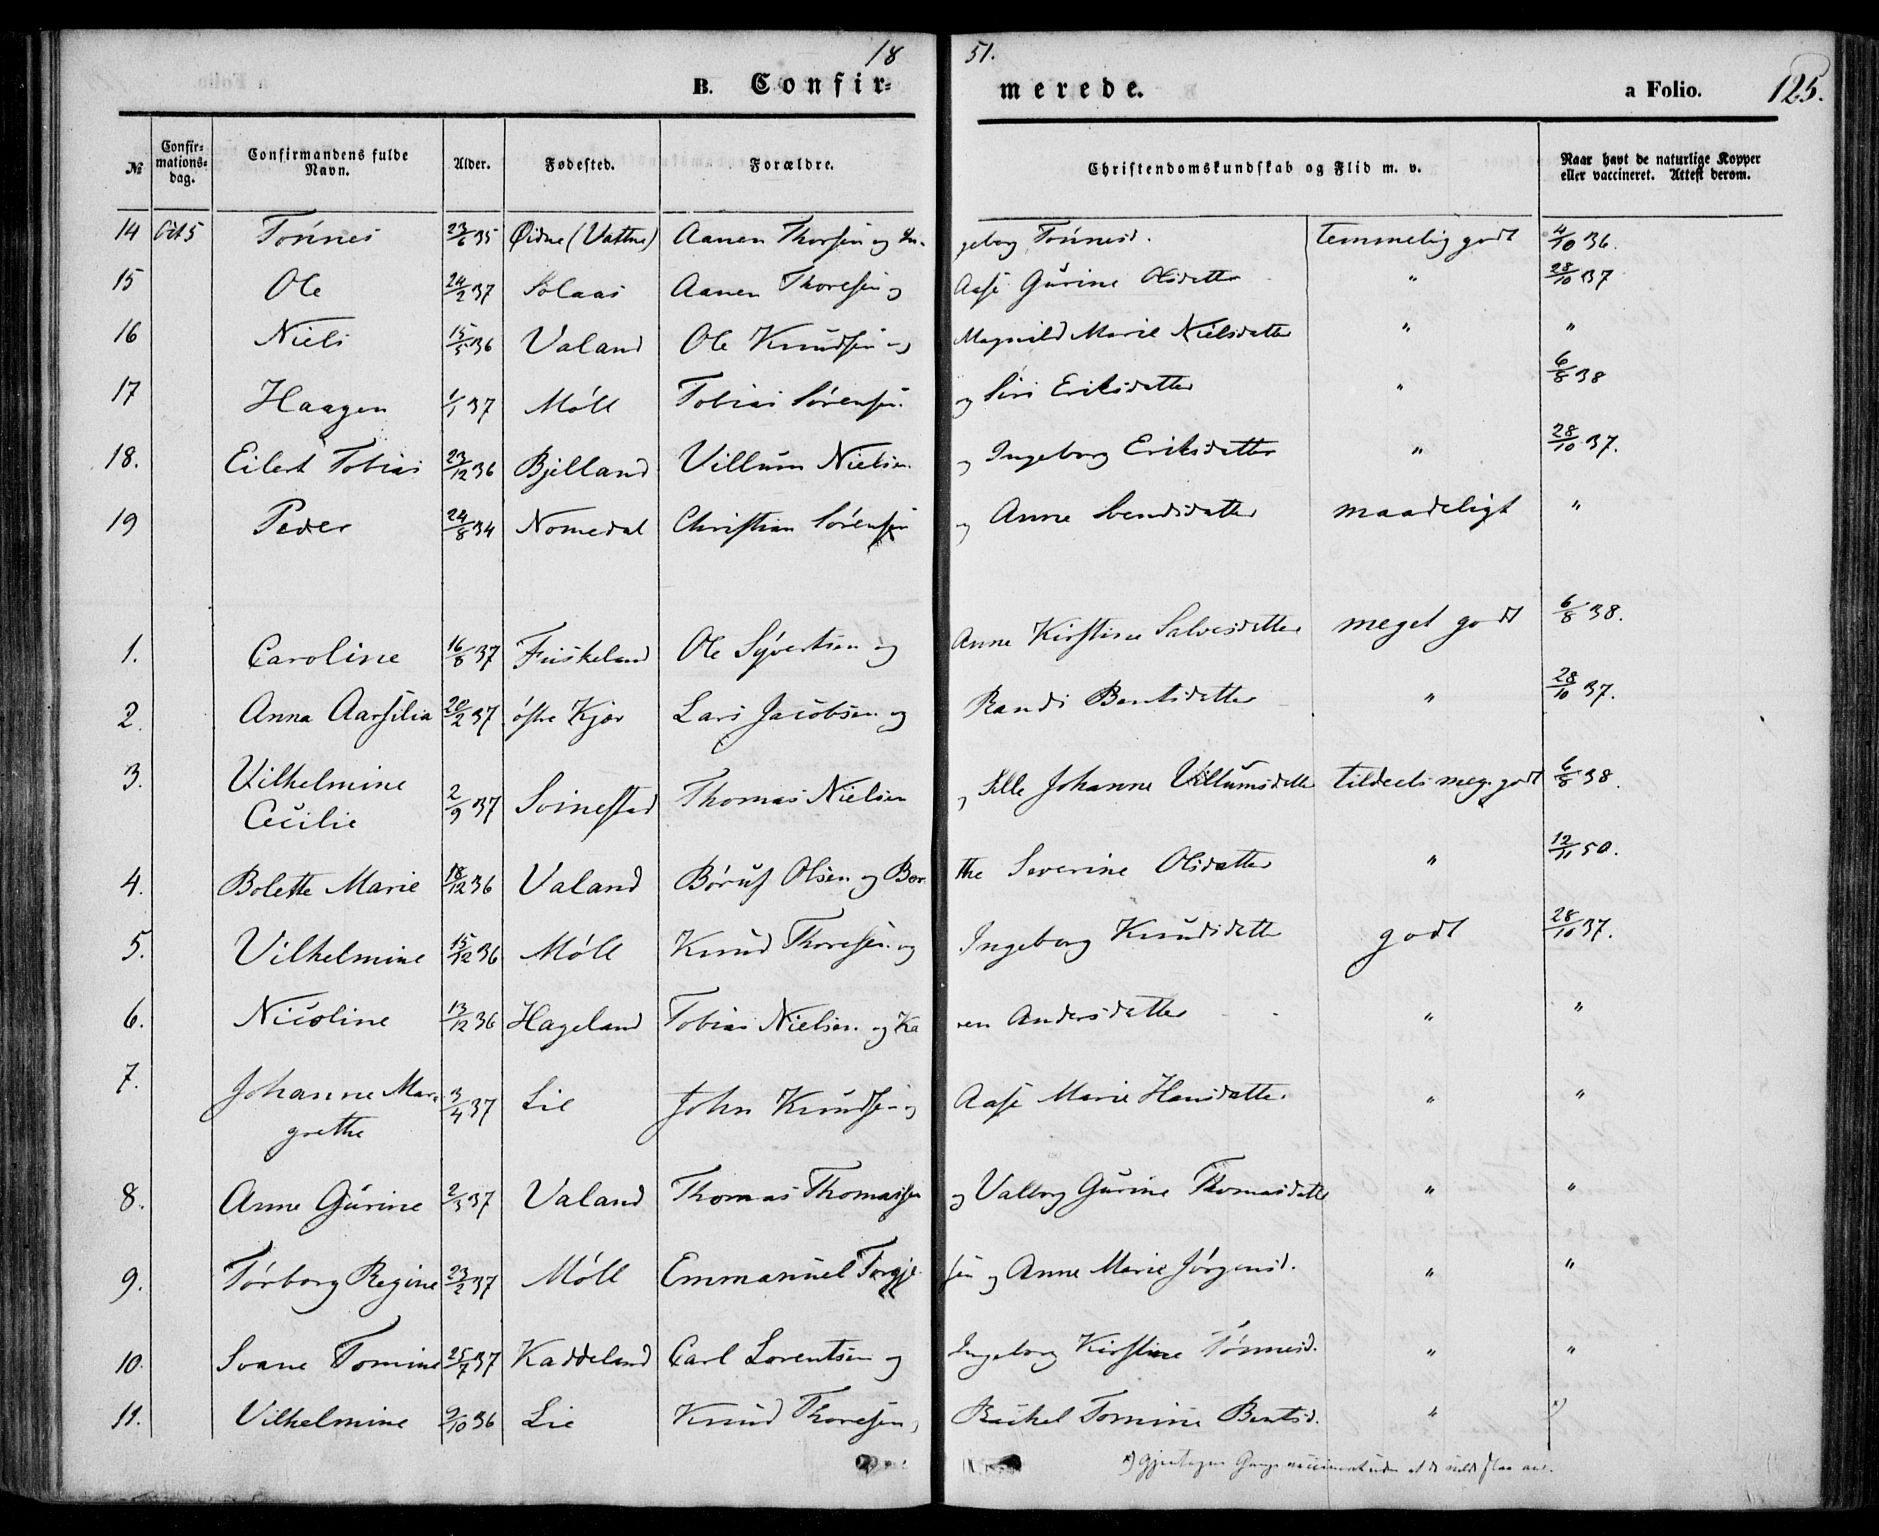 18 51.
B. Confir= merede. a Folio. 125.
№ Confir=mations=dag. Confirmandens fulde Navn. Alder. Fødested. Forældre. Christendomskundskab og Flid m. v. Naar havt de naturlige Kopper eller vaccineret. Attest derom.
14 Oct 5 Tönnes 23/6 35 Øidne (Vattne) Aanen Thorsen og In- geborg Tönnesd. temmelig godt 4/10 36.
15 Ole 24/2 37 Solaas Aanen Thoresen og Aase Gurine Olsdatter " 28/10 37
16 Niels 15/5 36 Valand Ole Knudsen og Magnild Marie Nielsdatter " "
17 Haagen 1/1 37 Möll Tobias Sørensen og Siri Eriksdatter " 6/8 38
18. Eilert Tobias 23/12 36 Bjelland Villum Nielsen og Ingeborg Eriksdatter " 28/10 37.
19 Peder 24/8 34 Nomedal Christian Sørensen og Anne Svendsdatter maadeligt "
1. Caroline 16/8 37 Fuskeland Ole Syvertsen og Anne Kirstine Salvesdatter meget godt 6/8 38.
2. Anna Aarsilia 20/2 37 östre Kjær Lars Jacobsen og Randi Bentsdatter " 28/10 37.
3. Vilhelmine Cecilie 2/9 37 Svinestad Thomas Nielsen og Elle Johanne Villumsdatter tildeels meg. godt 6/8 38.
4. Bolette Marie 18/12 36 Valand Böruf Olsen og Ber- the Severine Olsdatter " 12/11 50.
5. Vilhelmine 15/12 36 Möll Knud Thoresen og Ingeborg Knudsdatter godt 28/10 37.
6. Nicoline 13/12 36 Hageland Tobias Nielsen og Ka ren Andersdatter " "
7. Johanne Mar- grethe 3/4 37 Lie John Knudsen og Aase Marie Hansdatter " "
8. Anne Gurine 2/3 37 Valand Thomas Thomassen og Valborg Gurine Thomasdatter " "
9. Torborg Regine 23/2 37 Möll Emmanuel Torgje- sen og Anne Marie Jörgensd. " "
10. Svane Tomine 25/7 37 Kaddeland Carl Lorentsen og Ingeborg Kirstine Tönnesd. " "
11. Vilhelmine 9/10 36 Lie Knud Thoresen, Rachel Tomine Bentsd. " x)
x) Gange vaccineret uden at